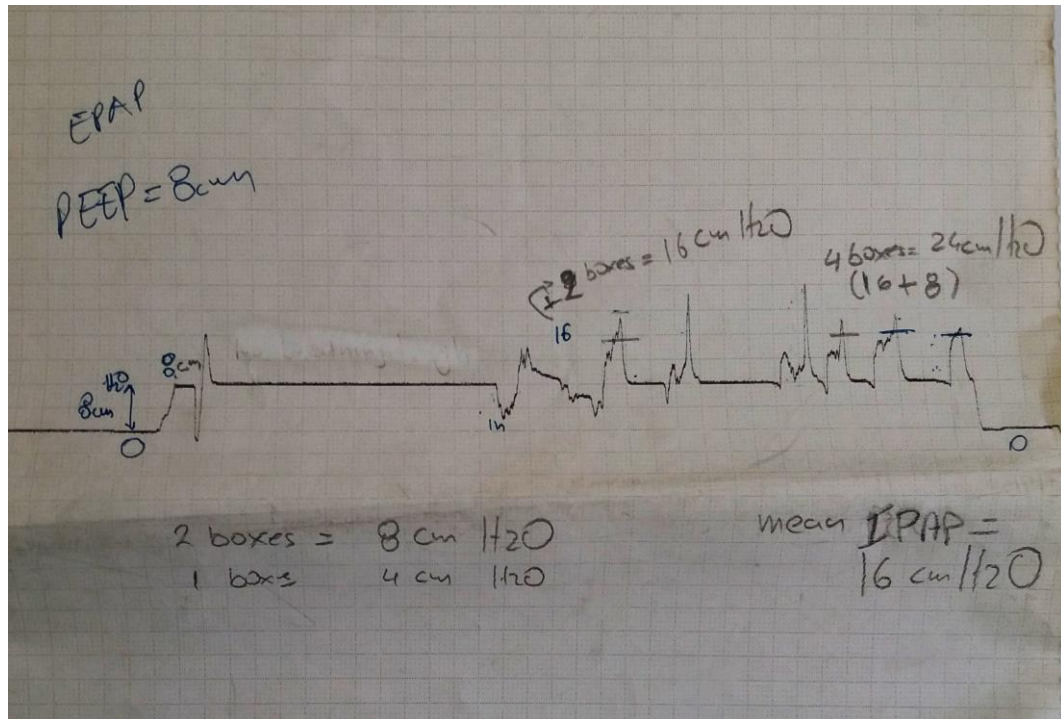 EPAP
PEEP = 8cm
2 boxes = 16 cm H2O
4 boxes = 24cm H2O
(16 + 8)
16
8cm
H2O
8cm
0
in
0
2 boxes = 8 cm H2O
1 boxs 4 cm H2O
mean IPAP =
16 cm H2O